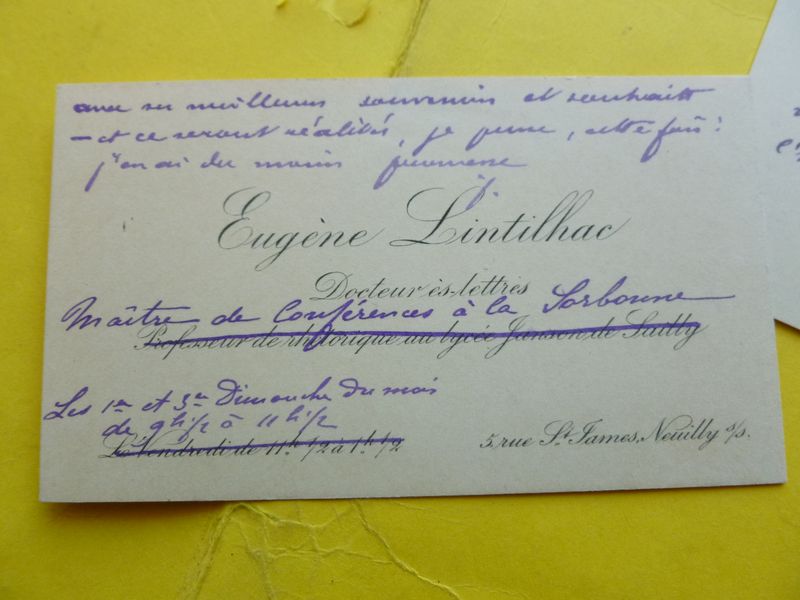 avec ses meilleurs souvenirs et souhaits
— et ce seront réalités, je pense, cette fois :
j'en ai du moins promesse
Eugène Lintilhac
Docteur ès-lettres
Maître de Conférences à la Sorbonne
Professeur de rhétorique au lycée Janson de Sailly
Les 1er et 3e Dimanche du mois
de 9h 1/2 à 11h 1/2
Le Vendredi de 11h 1/2 à 1h 1/2
5, rue St James, Neuilly s/s.